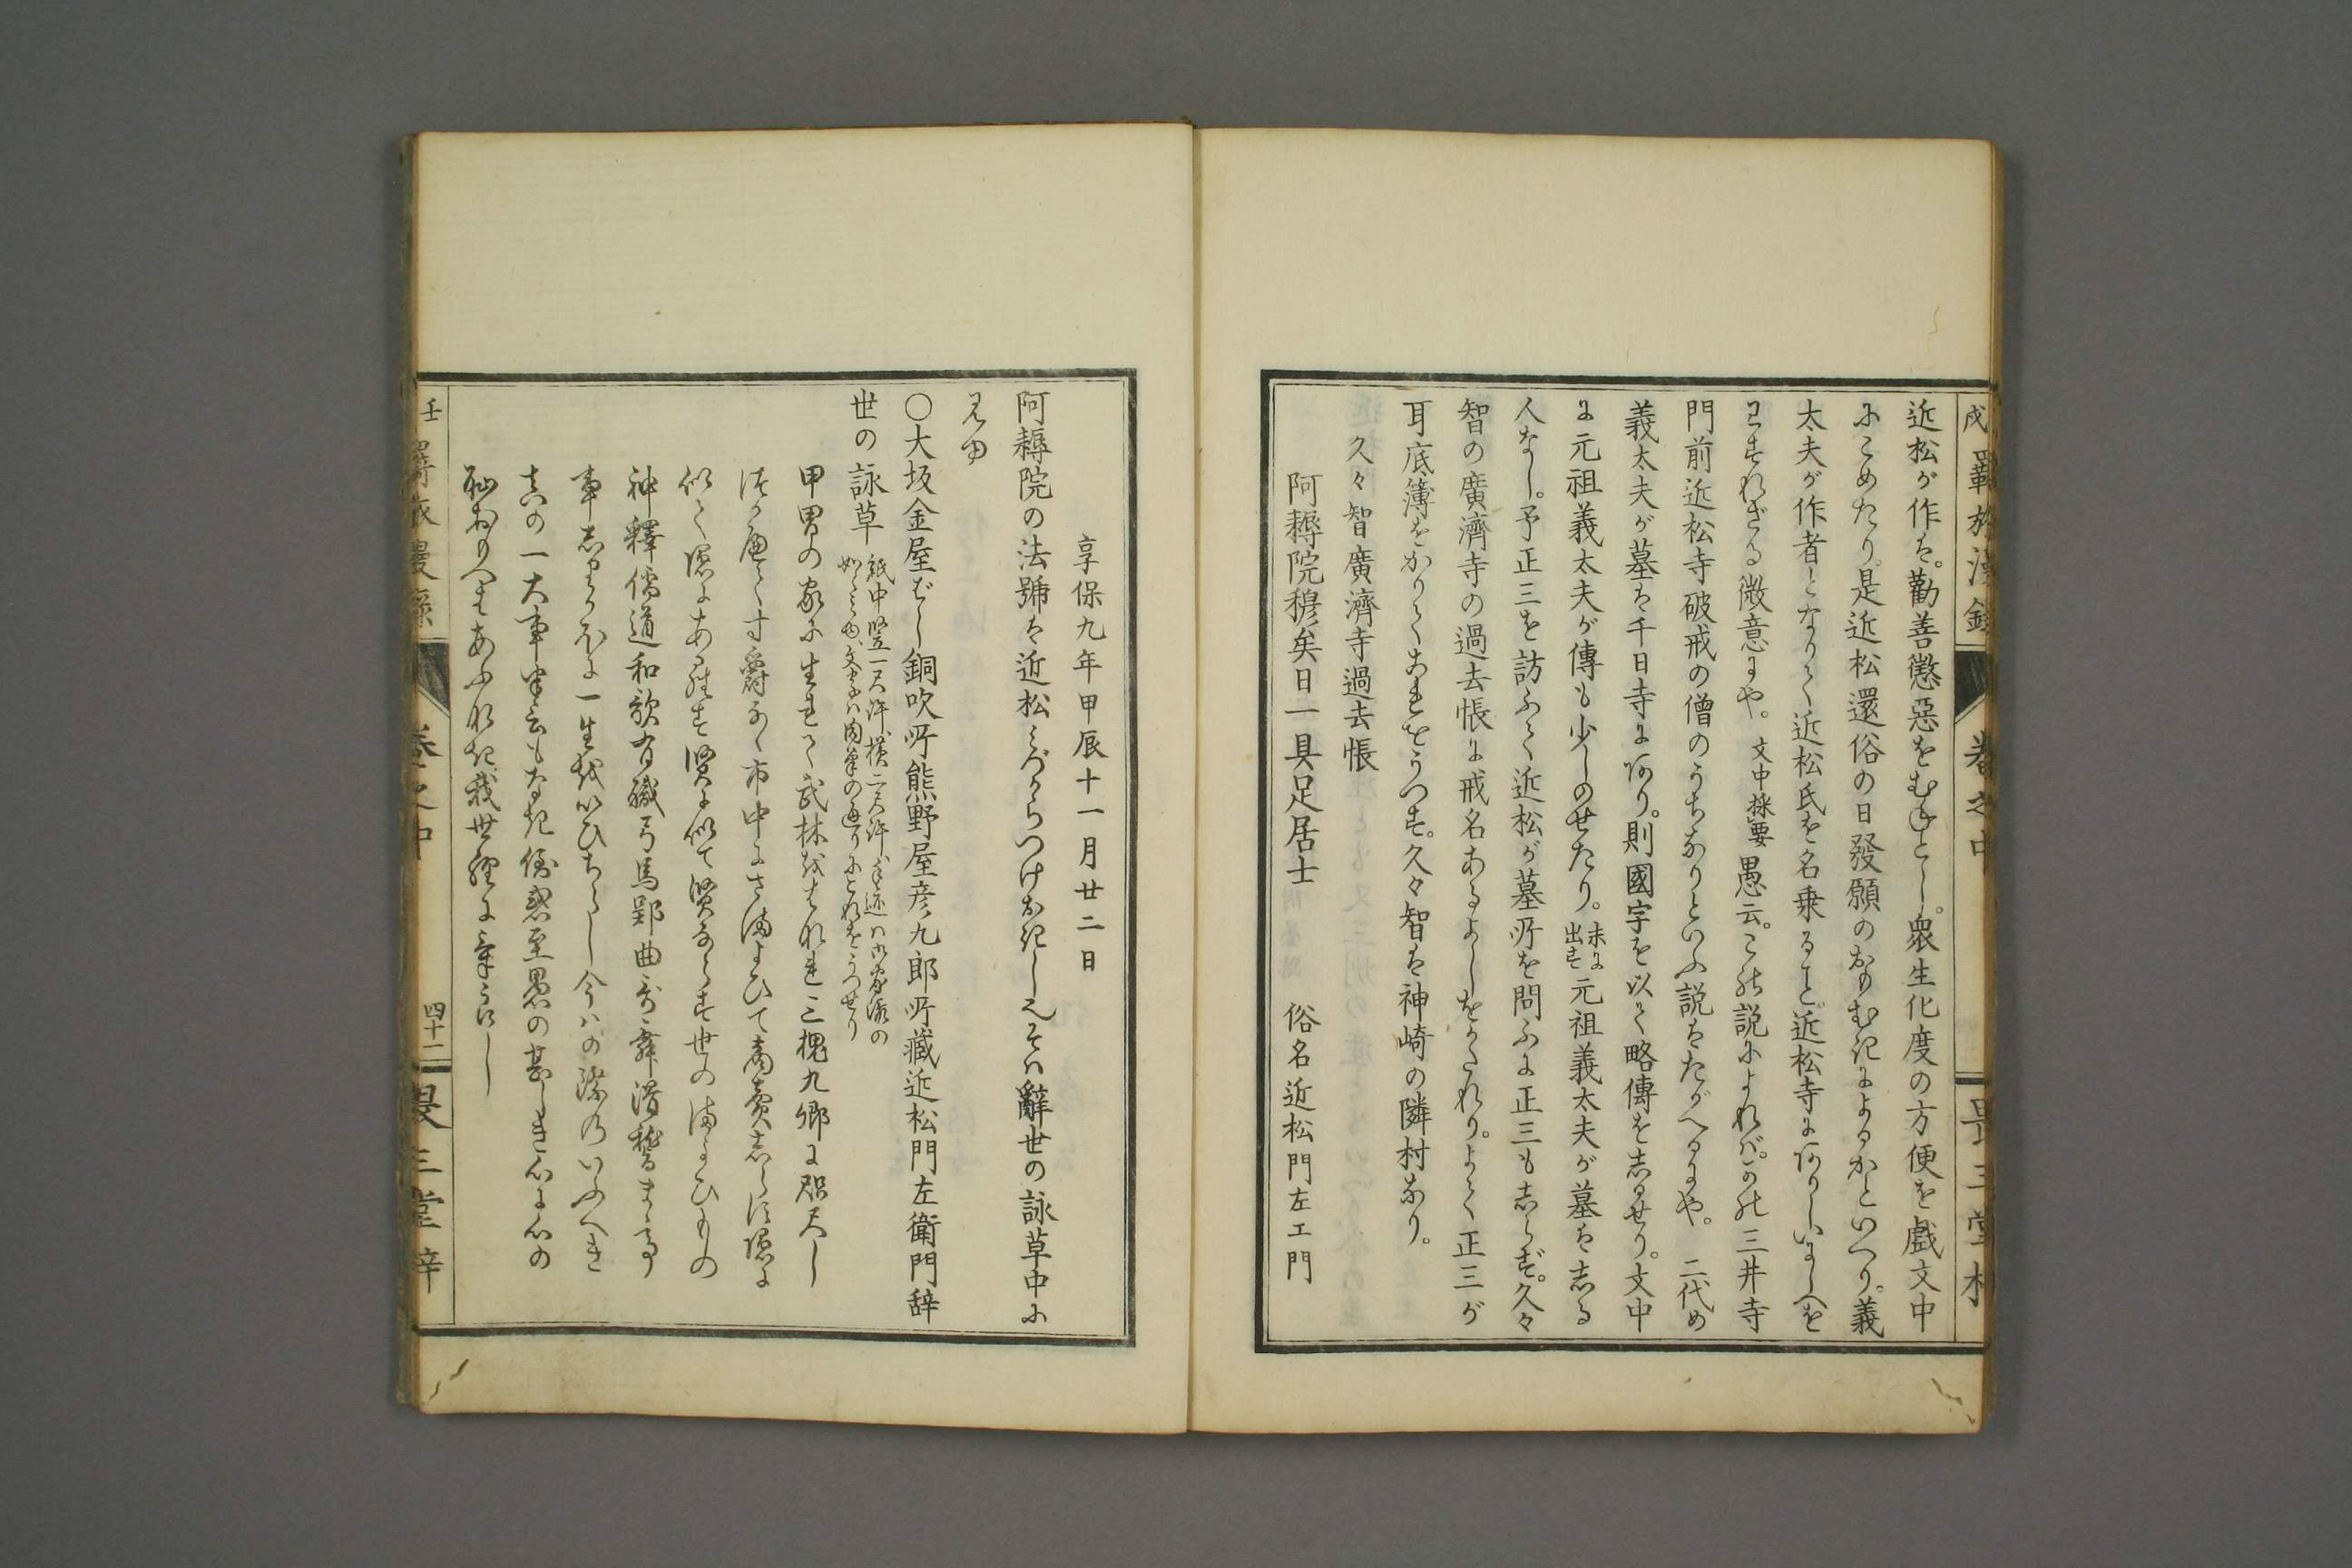 壬戌羇旅漫録 巻之中 畏三堂梓
近松が作は。勧善懲惡をむねとし。衆生化度の方便を戯文中
にこめたり。是近松還俗の日發願のおもむきによるかといへり。義
太夫が作者となりて近松氏を名乗ること。近松寺にありしいにしへを
わすれざる微意にや。文中採要愚云。この説によれば。かの三井寺
門前近松寺破戒の僧のうちなりといふ説はたがへるにや。二代め
義太夫が墓は千日寺にあり。則國字を以て略傳をしるせり。文中
に元祖義太夫が傳も少しのせたり。末に出す元祖義太夫が墓はしる
人なし。予正三を訪ふて近松が墓所を問ふに正三もしらず。久々
智の廣濟寺の過去帳に戒名あるよしをかたれり。よて正三が
耳底簿をかりてこれをうつす。久々智は神崎の隣村なり。
久々智廣濟寺過去帳
阿耨院穆矣日一具足居士 俗名近松門左エ門
享保九年甲辰十一月廿二日
阿耨院の法號は近松みづからつけおきしとぞそは辭世の詠草中に
見ゆ
〇大坂金屋ばし銅吹所熊野屋彦九郎所藏近松門左衛門辞
世の詠草 紙中竪一尺許横二尺許手迹ハ御家流の
如しみゆ、文字ハ肉筆の通りにこれをうつせり
甲冑の家に生れて武林をはなれ三槐九卿に咫尺し
つかへて寸爵なく市中にさまよひて商賣しらず隠に
似て隠にあらず賢に似て賢ならず世のまよひもの
神釋儒道和歌有職弓馬郢曲哥舞滑稽まて
事しりかほに一生をいひちらし今ハの際のいふへき
真の一大事は一言もなき倒惑至愚の甚しき心に心の
恥おもへはあふなき我世經に筆
四十二